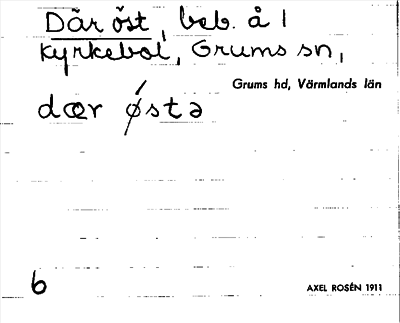 Där öst, beb. å 1
Kyrkebol, Grums sn,
Grums hd, Värmlands län
dær ǿstə
6
AXEL ROSÉN 1911